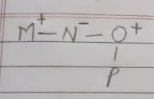 M⁺—N⁻—O⁺
P